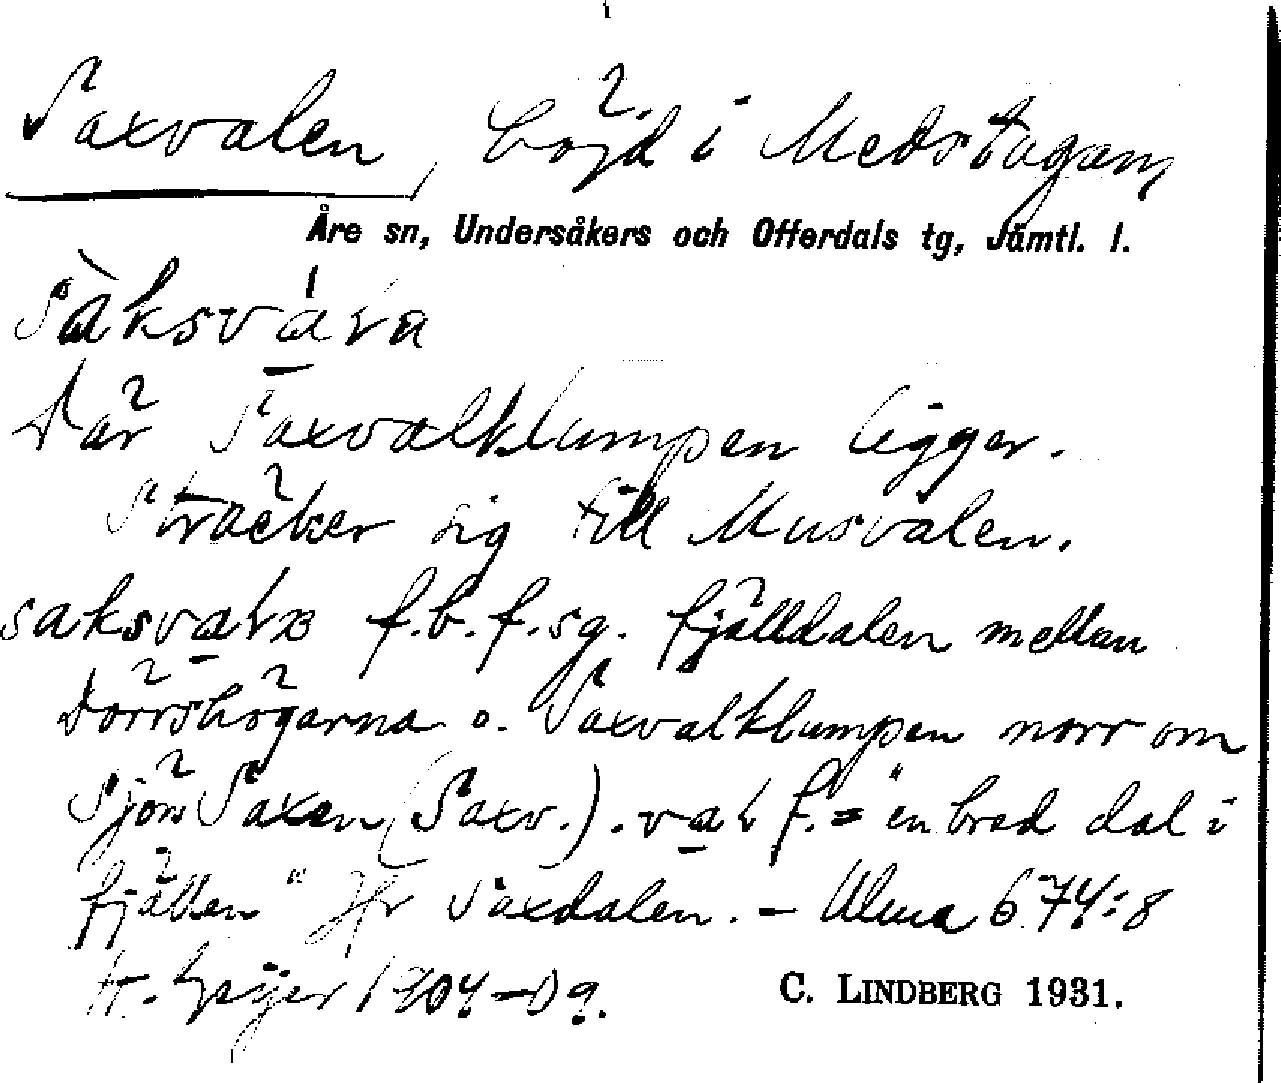 Saxvalen, böjd i Medstugan,
Åre sn, Undersåkers och Offerdals tg, Jämtl. l.
Där Saxvalklumpen ligger.
Sträcker sig till Musvalen.
f.b.f.sg. fjälldalen mellan
Dörrshögarna o. Saxvalklumpen norr om
Sjön Saxen (Saxv.). f. = "en bred dal i
fjällen" Jfr Saxdalen. – Ulma 674:8
H. Geijer 1904–09.
C. LINDBERG 1931.